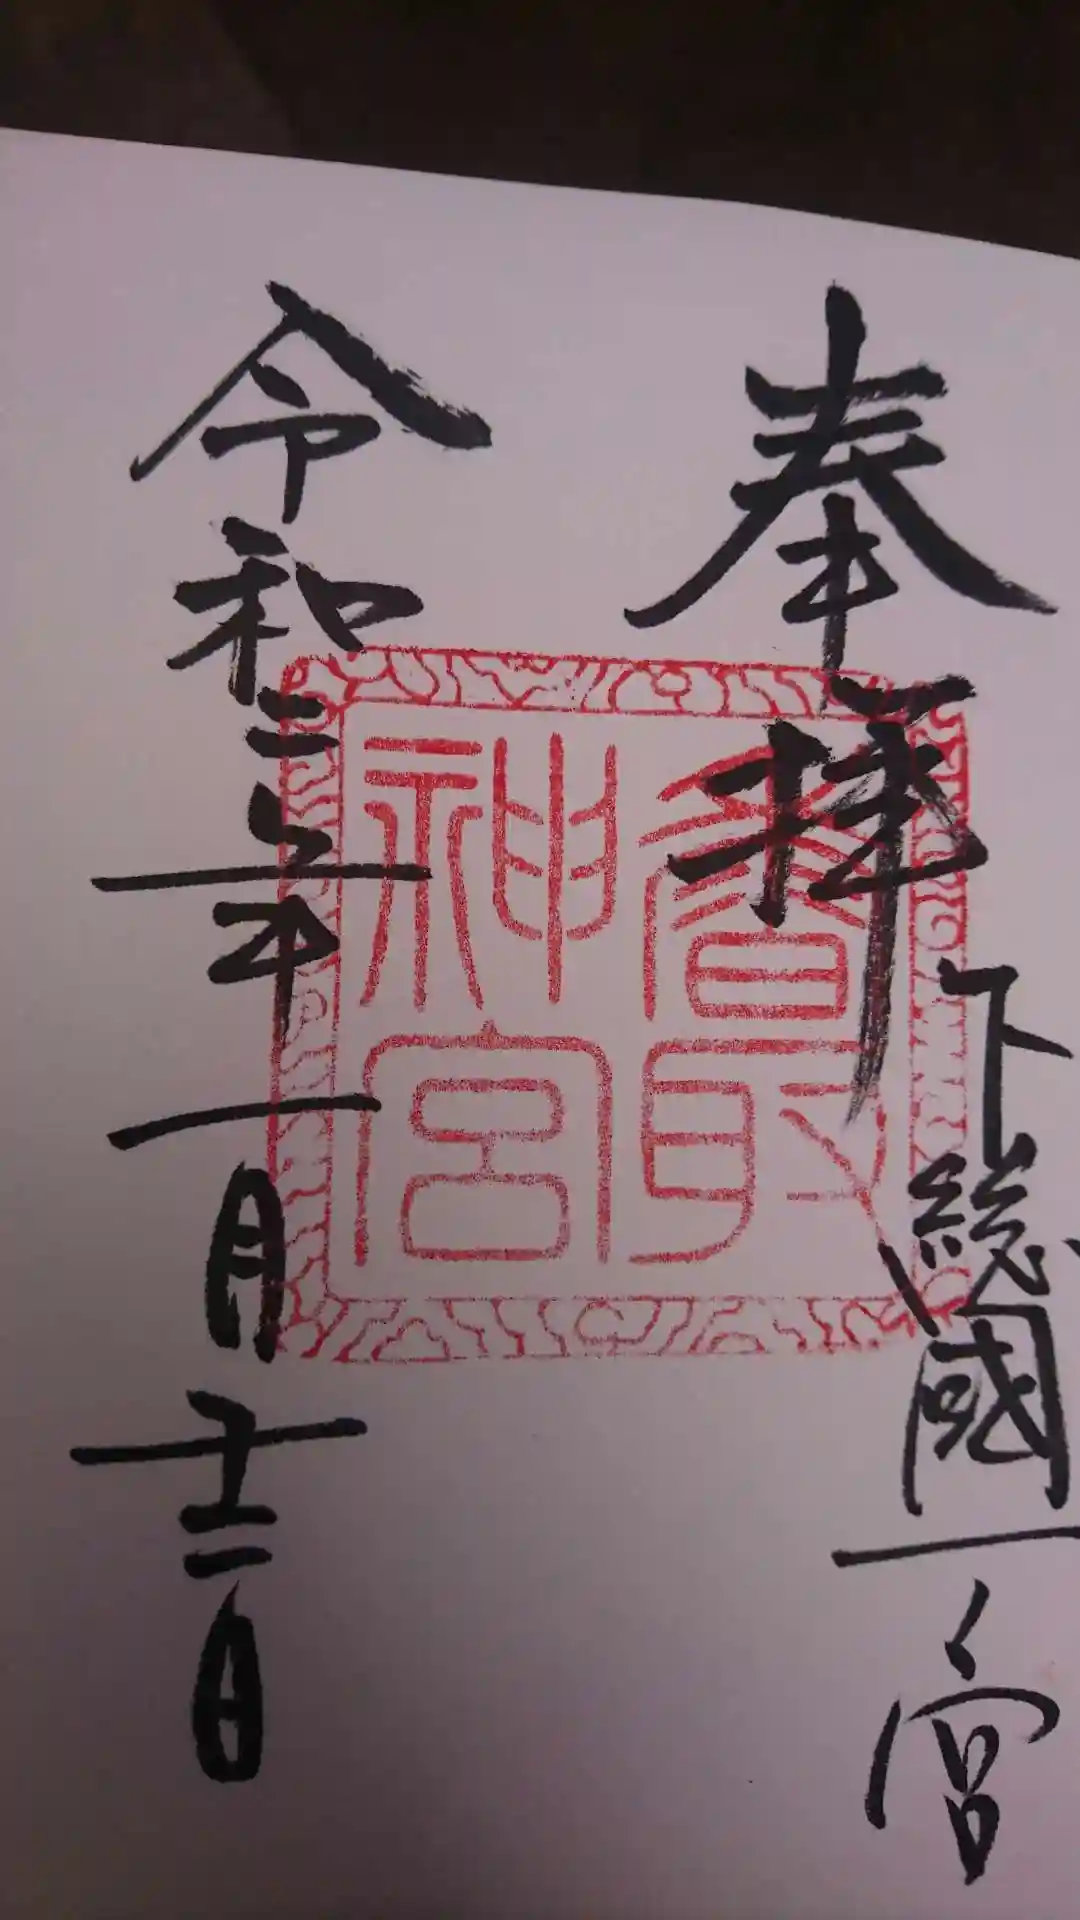 奉拝
下総國一宮
香取
神宮
令和二年一月十二日